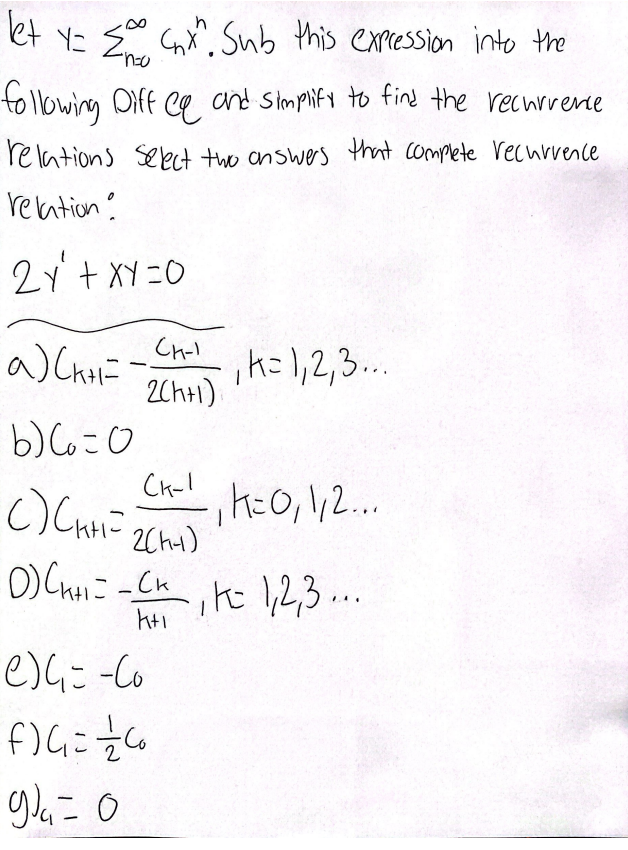 let y = ∑_{n=0}^∞ Cₙxⁿ. Sub this expression into the
following Diff eq and simplify to find the recurrence
relations select two answers that complete recurrence
relation:
2y' + xy = 0
a) C_{k+1} = - C_{k-1} / 2(k+1) , k = 1,2,3...
b) C₀ = 0
c) C_{k+1} = C_{k-1} / 2(k-1) , k=0,1,2...
D) C_{k+1} = -C_k / k+1 , k= 1,2,3...
e) C₁ = -C₀
f) C₁ = 1/2 C₀
g) C₁ = 0